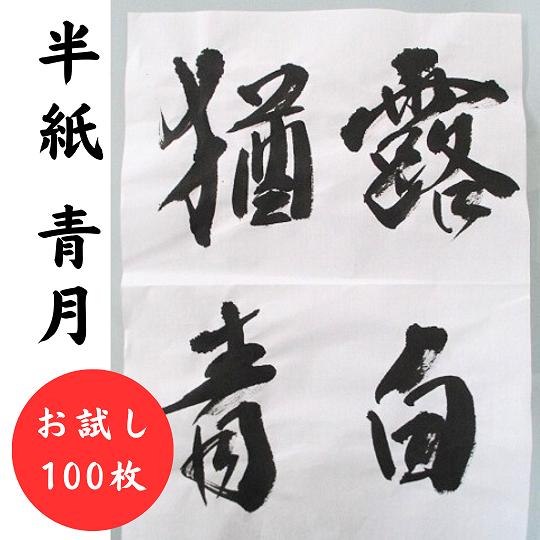 半紙 青月
お試し
100枚
露白
猶青